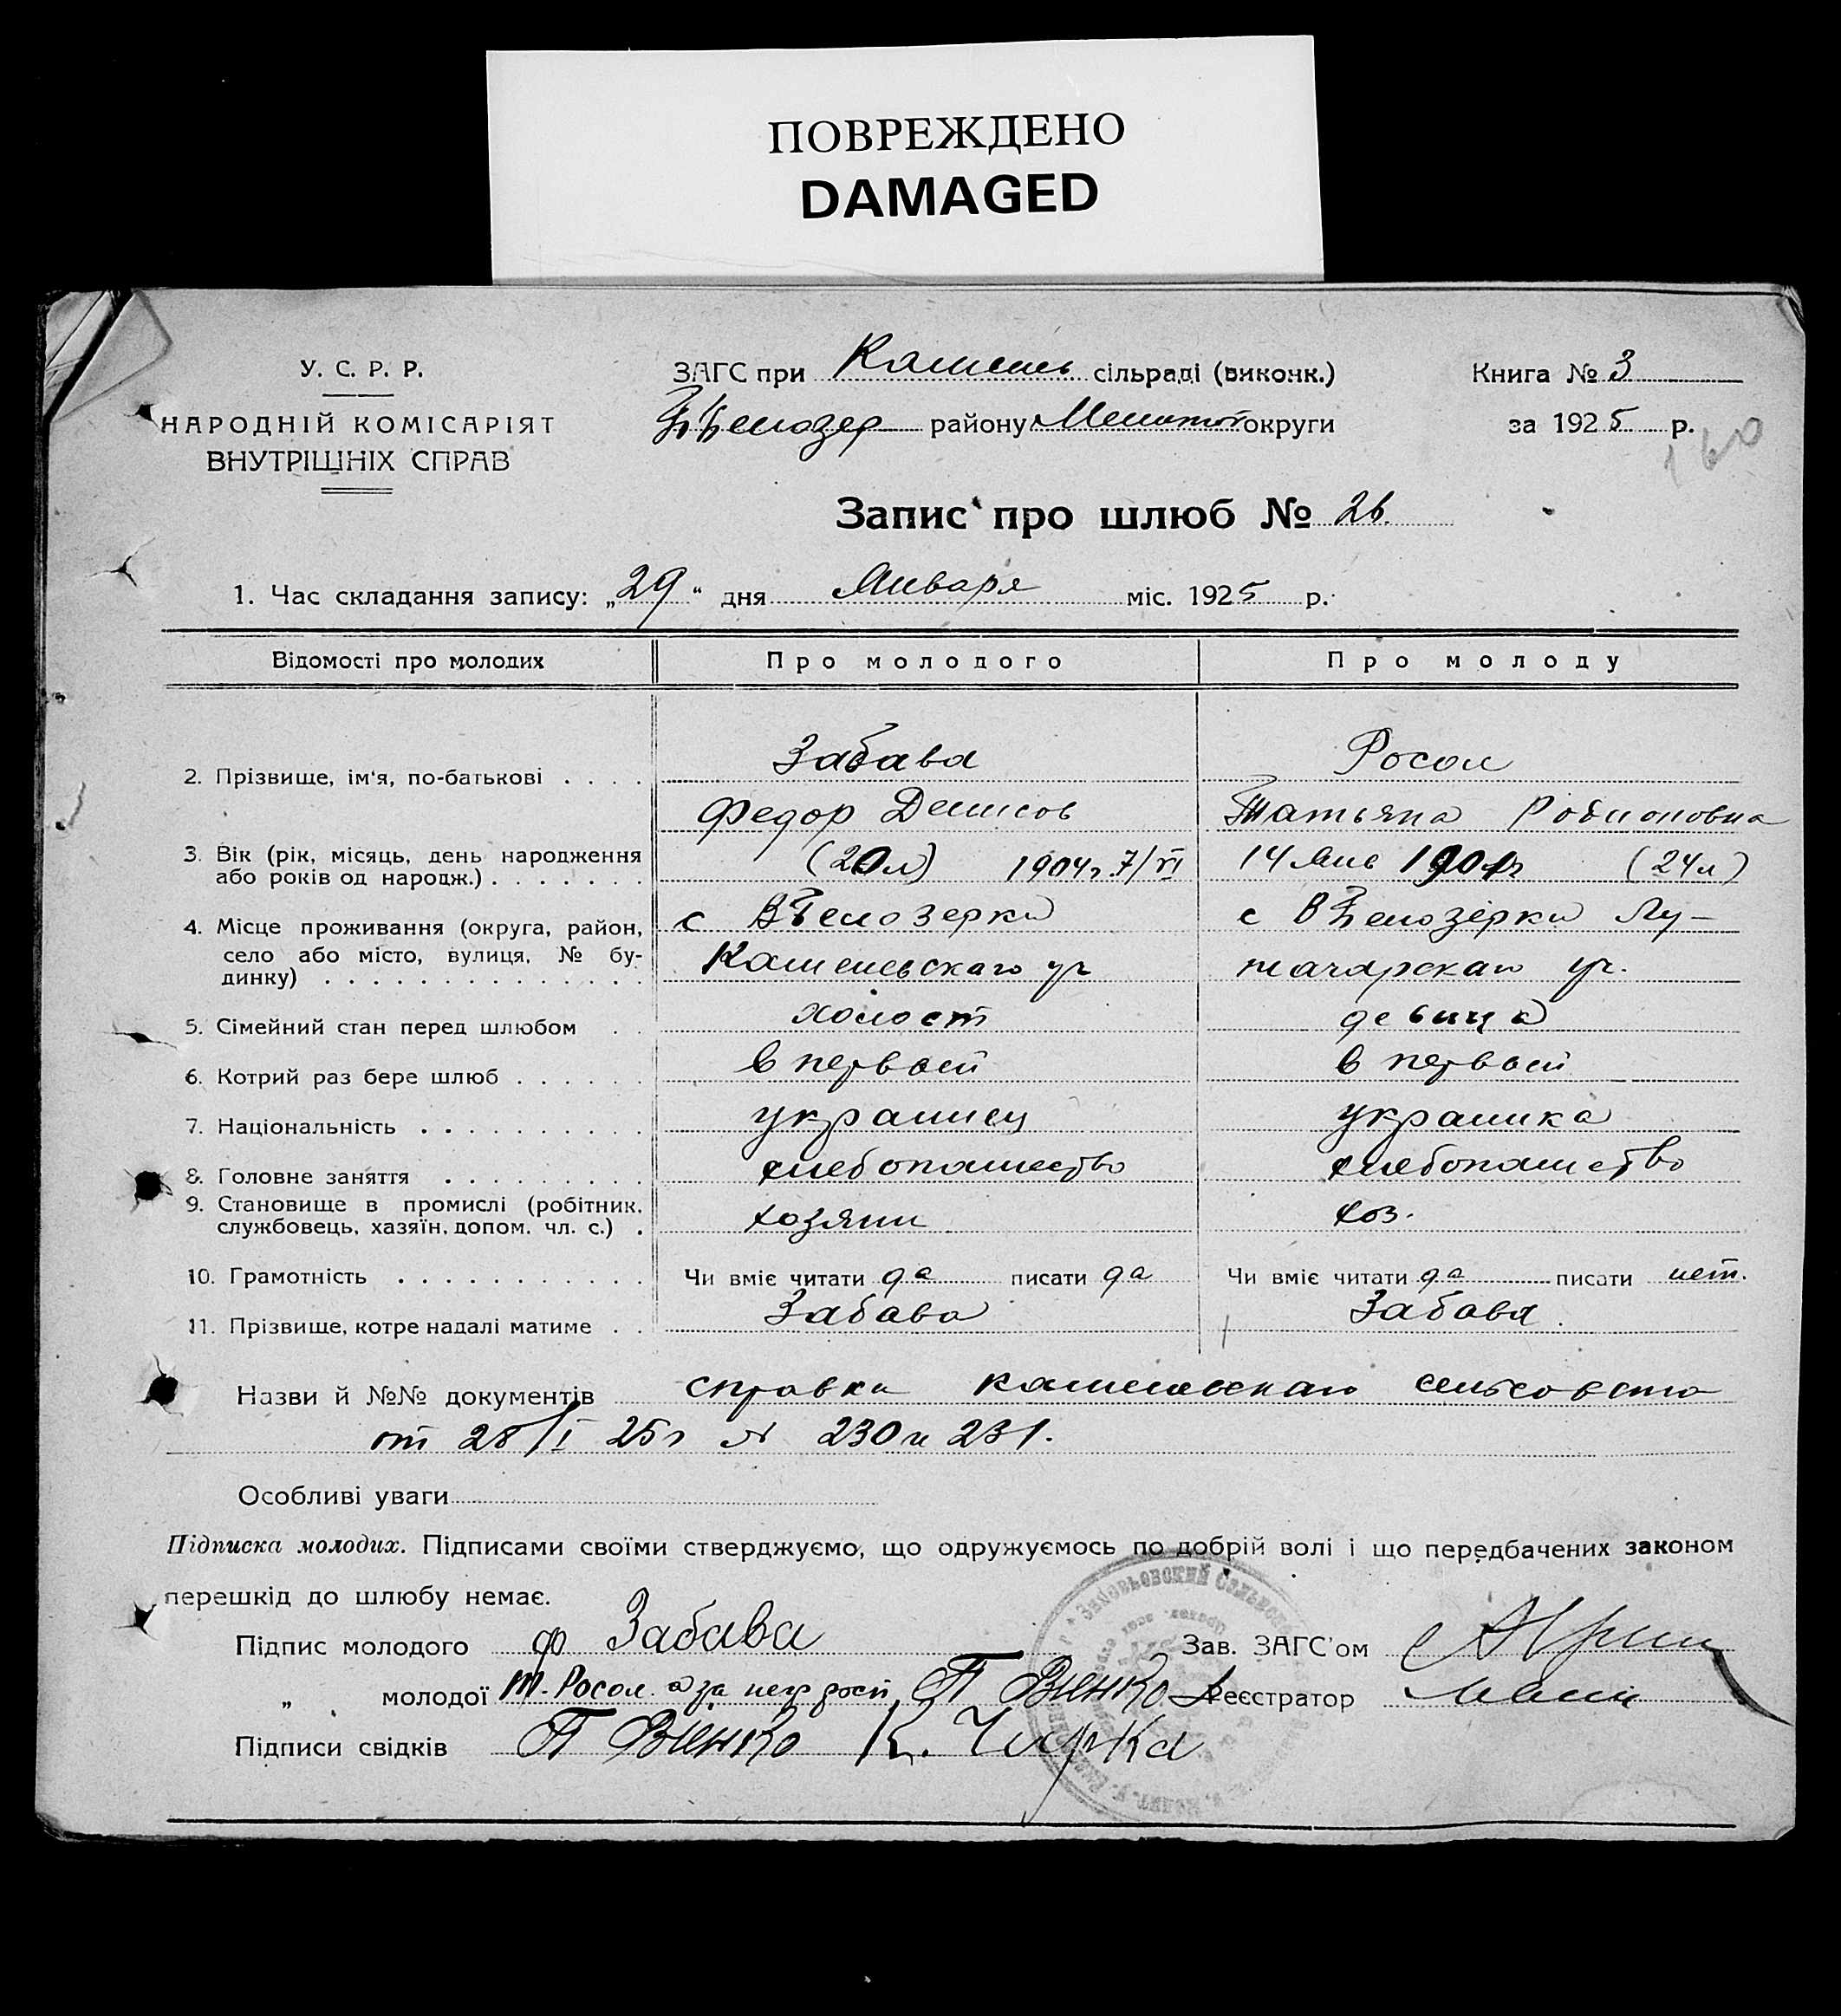 ПОВРЕЖДЕНО
DAMAGED
У. С. Р. Р.
НАРОДНІЙ КОМІСАРІЯТ
ВНУТРІШНІХ СПРАВ
ЗАГС при Камень сільраді (виконк.)
району Мелитоп округи
Книга № 3
за 1925 р.
160
Запис про шлюб № 26.
1. Час складання запису: „29“ дня Января міс. 1925 р.
Відомості про молодих
Про молодого
Про молоду
2. Прізвище, ім'я, по-батькові . . . .
Забава
Росол
Федор Денисов
Татьяна Родионовна
3. Вік (рік, місяць, день народження
або років од народж.) . . . . . . .
(20 л) 1904 г. 7/VI
14 Янв (24 л)
4. Місце проживання (округа, район,
село або місто, вулиця, № бу-
динку) . . . . . . . . . . . . . .
с В Белозерки
Каменевскаго уч
с В Белозерки Лу-
начарскаго уч.
5. Сімейний стан перед шлюбом . .
холост
девица
6. Котрий раз бере шлюб . . . . . .
в первой
в первой
7. Національність . . . . . . . . . .
украинец
украинка
8. Головне заняття . . . . . . . . .
хлебопашество
хлебопашество
9. Становище в промислі (робітник,
службовець, хазяїн, допом. чл. с.) .
хозяин
хоз.
10. Грамотність . . . . . . . . . . .
Чи вміє читати да писати да
Чи вміє читати да писати нет.
11. Прізвище, котре надалі матиме . .
Забава
Забава.
Назви й №№ документів справки каменевскаго сельсовета
от 28/I 25 г № 230 и 231.
Особливі уваги
Підписка молодих. Підписами своїми стверджуємо, що одружуємось по добрій волі і що передбачених законом
перешкід до шлюбу немає.
Підпис молодого Ф Забава
Зав. ЗАГС'ом
„ молодої Т. Росол а за негр П Вненко
Реєстратор
Підписи свідків П Вненко К. Чирка